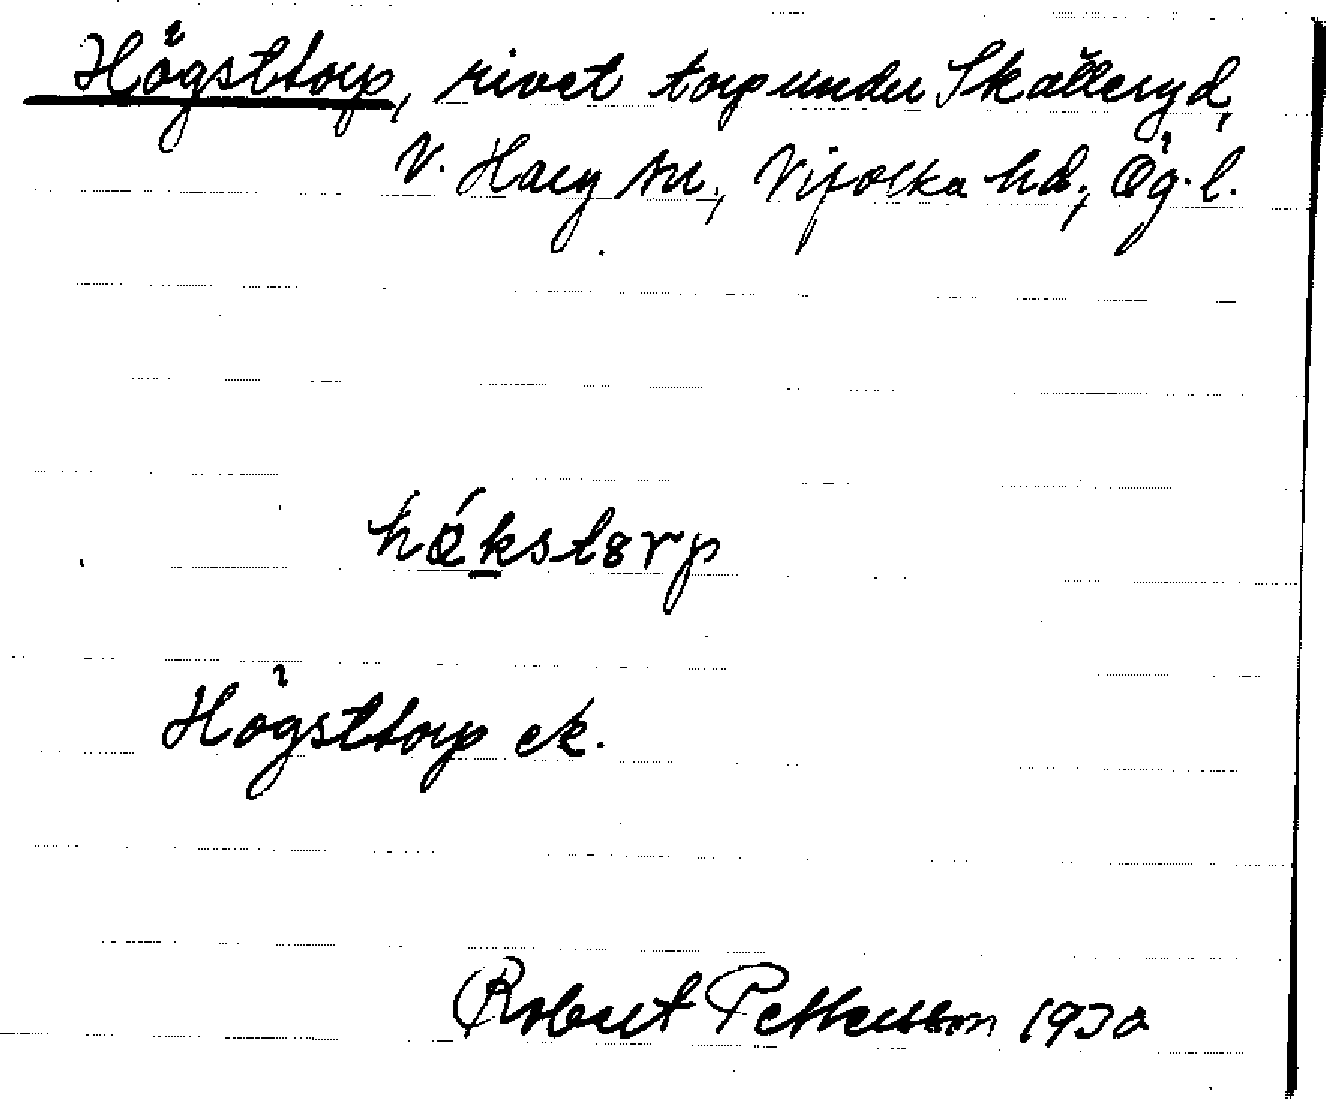 Högsttorp, rivet torp under Skälleryd,
V. Harg sn, Vifolka hd, Ög. l.
hǿkstorp
Högsttorp ek.
Robert Pettersson 1932